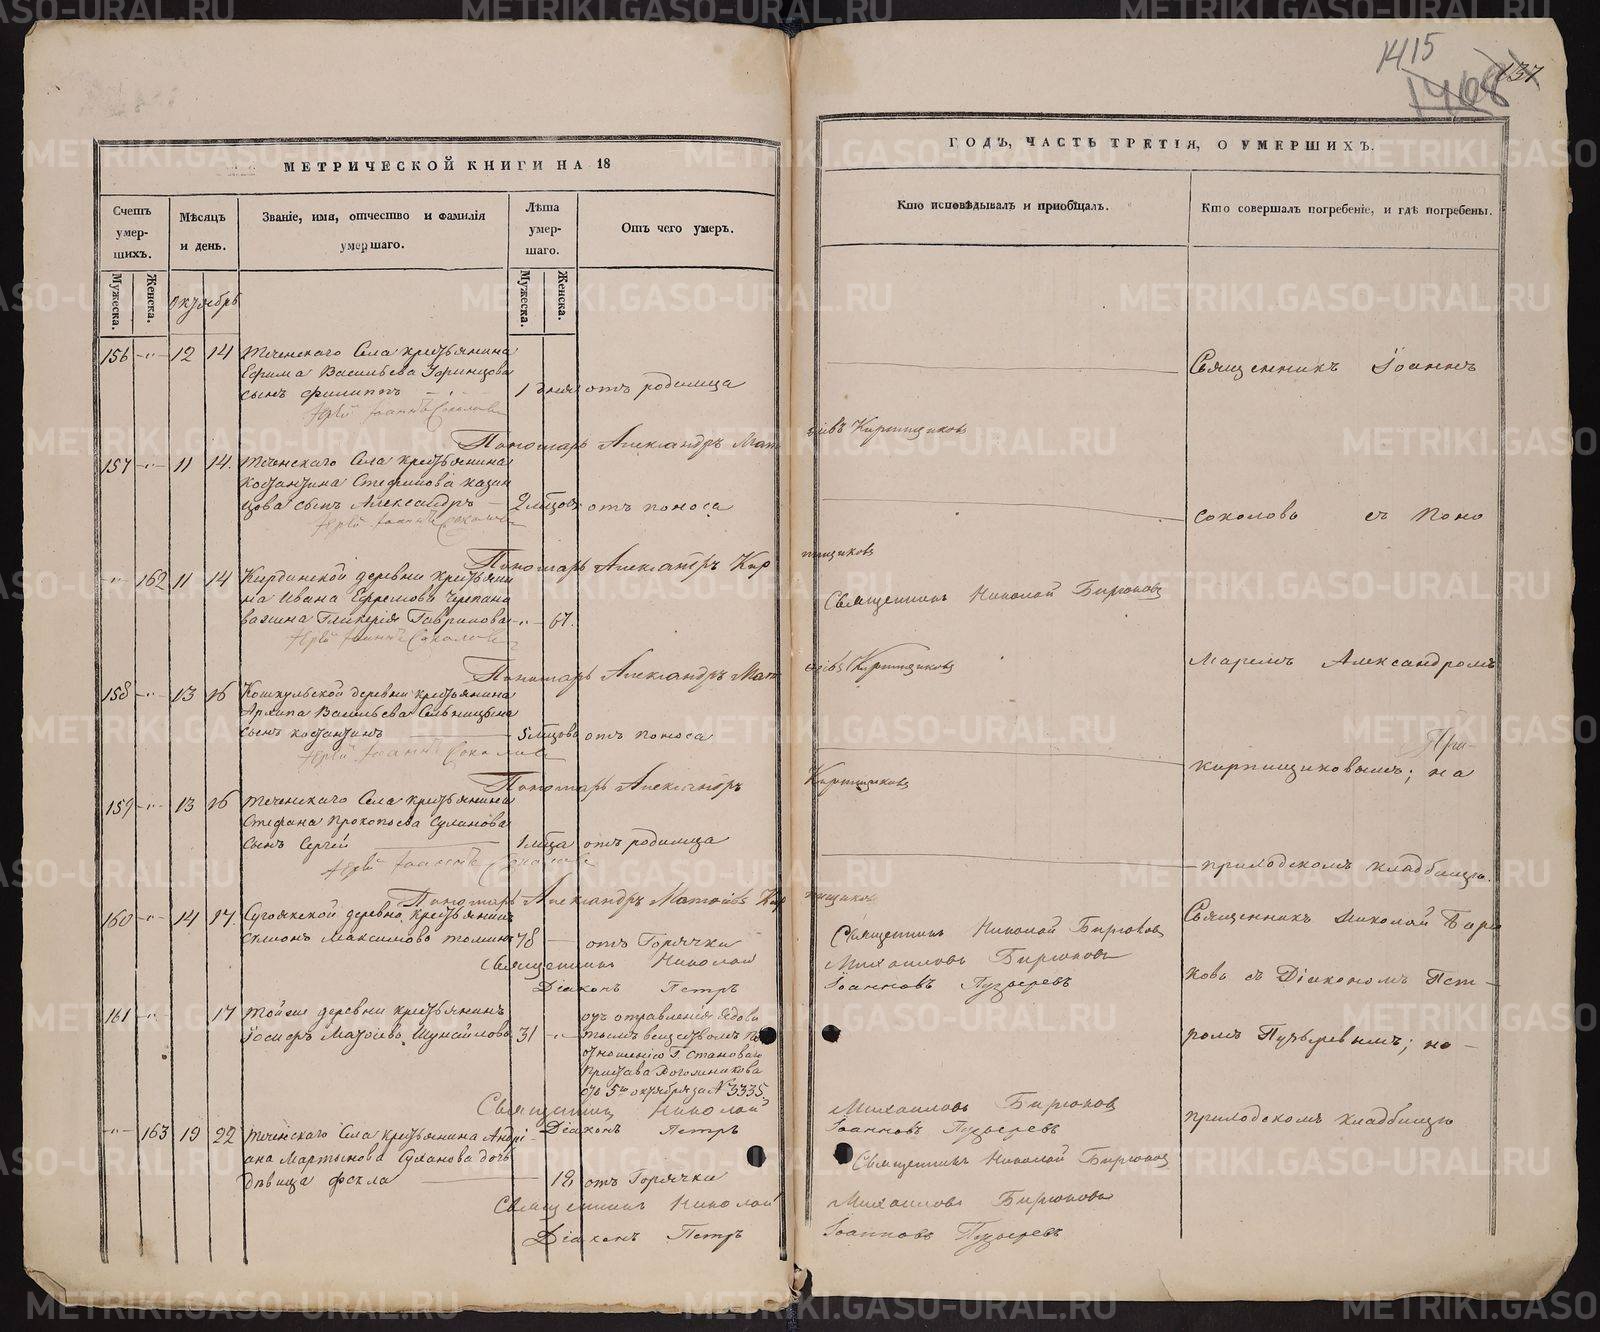 1415
1408
137
МЕТРИЧЕСКОЙ КНИГИ НА 18
ГОДЪ, ЧАСТЬ ТРЕТІЯ, О УМЕРШИХЪ.
Счетъ умер-шихъ.
Мѣсяцъ и день.
Званіе, имя, отчество и фамилія умершаго.
Лѣта умер-шаго.
Отъ чего умеръ.
Кто исповѣдывалъ и пріобщалъ.
Кто совершалъ погребеніе, и гдѣ погребены.
Мужеска.
Женска.
Мужеска.
Женска.
Октябрь
156 -"- 12 14 Теченскаго Села крестьянина
Ефима Васильева
сынъ Филиппъ 1 дня отъ родимца
Іерей Іоаннъ Соколовъ
Пономарь Александръ Мат
ѳіевъ Кирпищиковъ
157 -"- 11 14 Теченскаго Села крестьянина
Костантина Стефанова Казан
цова сынъ Александръ 2 мѣсцовъ отъ поноса
Іерей Іоаннъ Соколовъ
Пономарь Александръ Кир
пищиковъ
-"- 162 11 14 деревни крестьяни
на Ивана Ефремова Черепана
Гликерія Гаврилова -"- 67.
Іерей Іоаннъ Соколовъ
Священникъ Николай Бирюковъ
Пономарь Александръ Мат
ѳіевъ Кирпищиковъ
158 -"- 13 16 Кошкульской деревни крестьянина
Архипа Васильева
сынъ Костантинъ 5 мѣсцовъ отъ поноса
Іерей Іоаннъ Соколовъ
Пономарь Александръ
Кирпищиковъ
159 -"- 13 16 Теченскаго Села крестьянина
Стефана Прокопьева Суханова
сынъ Сергей 1 мѣсца отъ родимца
Іерей Іоаннъ Соколовъ
Пономарь Александръ Матѳіевъ Кир
пищиковъ
160 -"- 14 17 Сугоякской деревни крестьянинъ
Симіонъ Максимовъ 78 - отъ Горячки
Священникъ Николай
Діаконъ Петръ
Священникъ Николай Бирюковъ
Михаиловъ Бирюковъ
Іоанновъ Пузыревъ
161 -"- 17 Тойже деревни крестьянинъ
Іосифъ Матѳіевъ 31 -"- отъ отравленія ядови
тымъ веществомъ по
отношенію Г. Становаго
Пристава
отъ 5го октября за № 3335.
Священникъ Николай
Діаконъ Петръ
Михаиловъ Бирюковъ
Іоанновъ Пузыревъ
-"- 163 19 22 Теченскаго Села крестьянина Андрі-
ана Мартынова Суханова дочь
дѣвица Фекла 18 отъ Горячки
Священникъ Николай
Діаконъ Петръ
Священникъ Николай Бирюковъ
Михаиловъ Бирюковъ
Іоанновъ Пузыревъ
Священникъ Іоаннъ
Соколовъ съ Поно
маремъ Александромъ
Кирпищиковымъ; на
При-
приходскомъ кладбищѣ.
Священникъ Николай Бирю
ковъ съ Діакономъ Пет-
ромъ Пузыревымъ; на-
приходскомъ кладбищѣ
METRIKI.GASO-URAL.RU